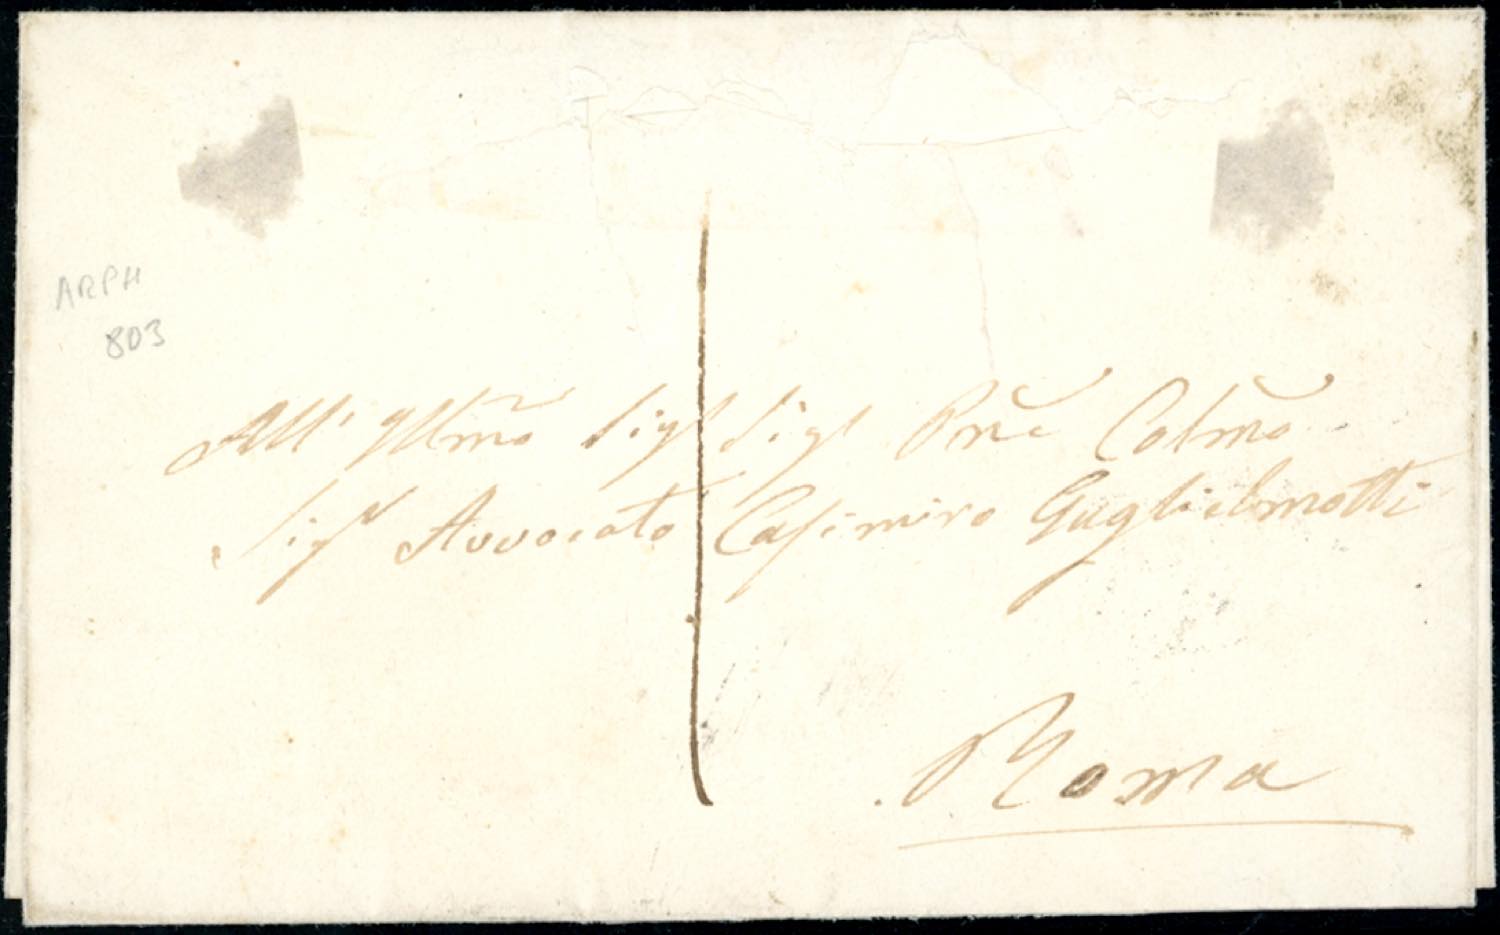 ARPH
803
All' Illmo Sigr Sigr Prne Colmo
Sigr Avvocato Casimiro Guglielmotti
Roma